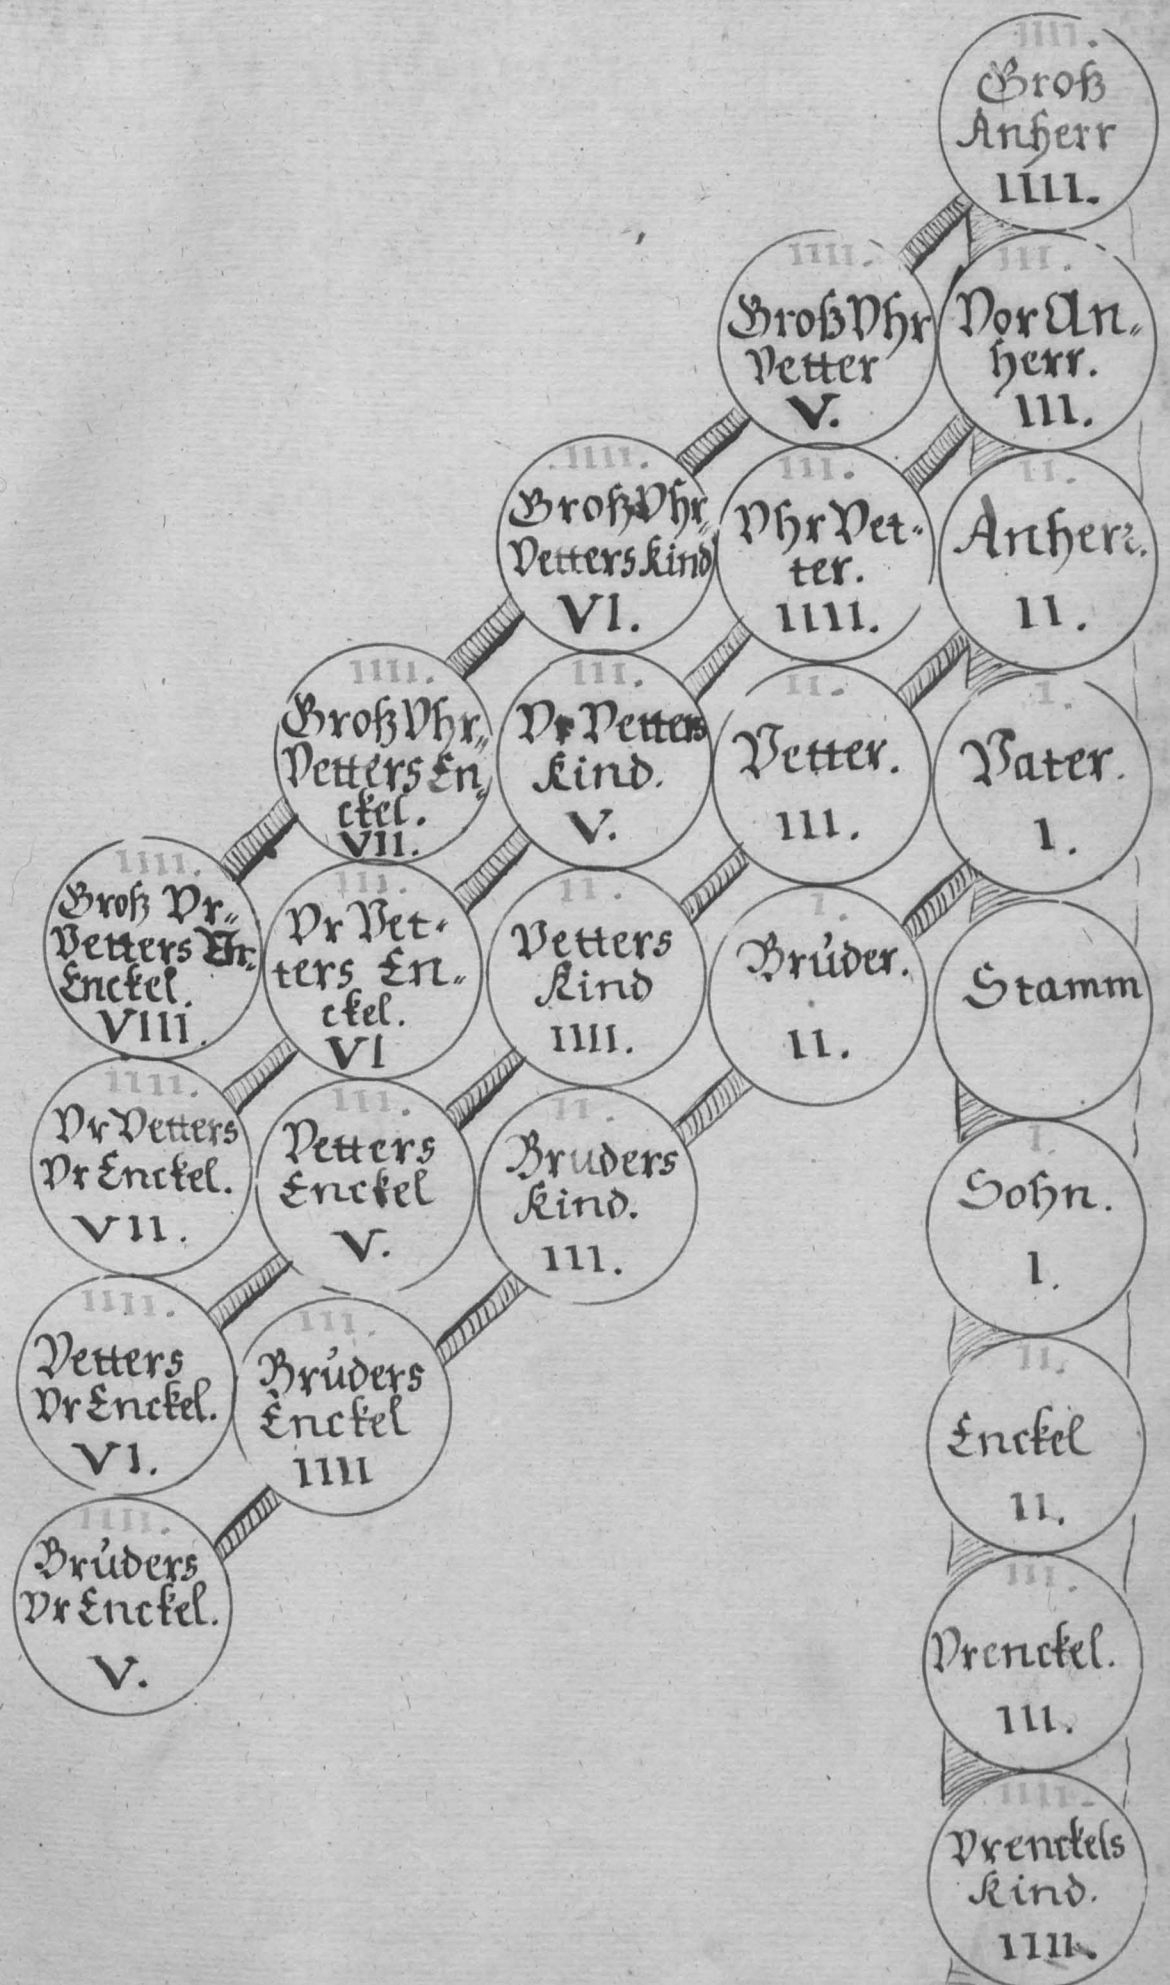 IIII.
Groß
Anherr
IIII.
IIII.
Groß Vhr
Vetter
V.
III.
Vor An„
herr.
III.
.IIII.
Groß Vhr„
Vetters kind
VI.
III.
Vhr Vet„
ter.
IIII.
II.
Anherr.
II.
IIII.
Groß Vhr„
Vetters En„
ckel.
VII.
III.
Vr Vetters
kind.
V.
II.
Vetter.
III.
I.
Vater.
I.
IIII.
Groß Vr„
Vetters Vr„
Enckel.
VIII.
III.
Vr Vet„
ters En„
ckel.
VI
II.
Vetters
kind
IIII.
I.
Brůder.
II.
Stamm
IIII.
Vr Vetters
Vr Enckel.
VII.
III.
Vetters
Enckel
V.
II.
Bruders
kind.
III.
I.
Sohn.
I.
IIII.
Vetters
Vr Enckel.
VI.
III.
Brůders
Enckel
IIII
II.
Enckel
II.
IIII.
Brůders
Vr Enckel.
V.
III.
Vrenckel.
III.
IIII.
Vrenckels
kind.
IIII.